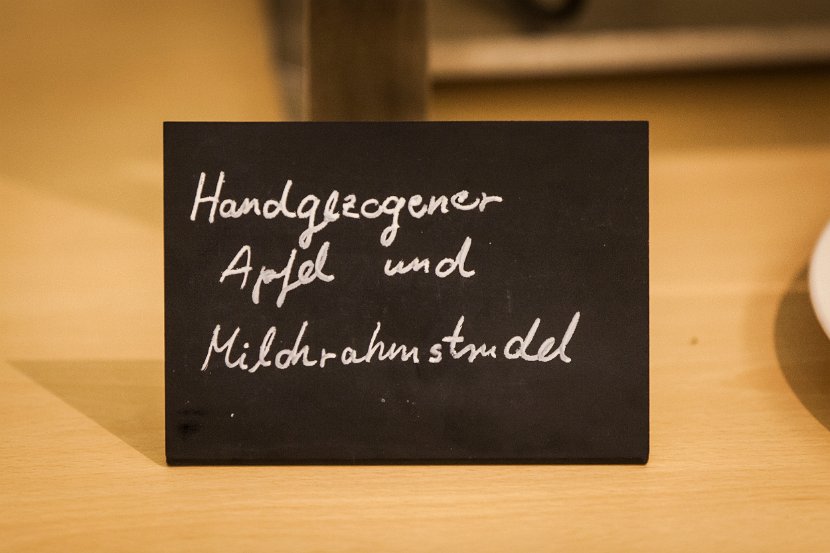 Handgezogener
Apfel und
Milchrahmstrudel